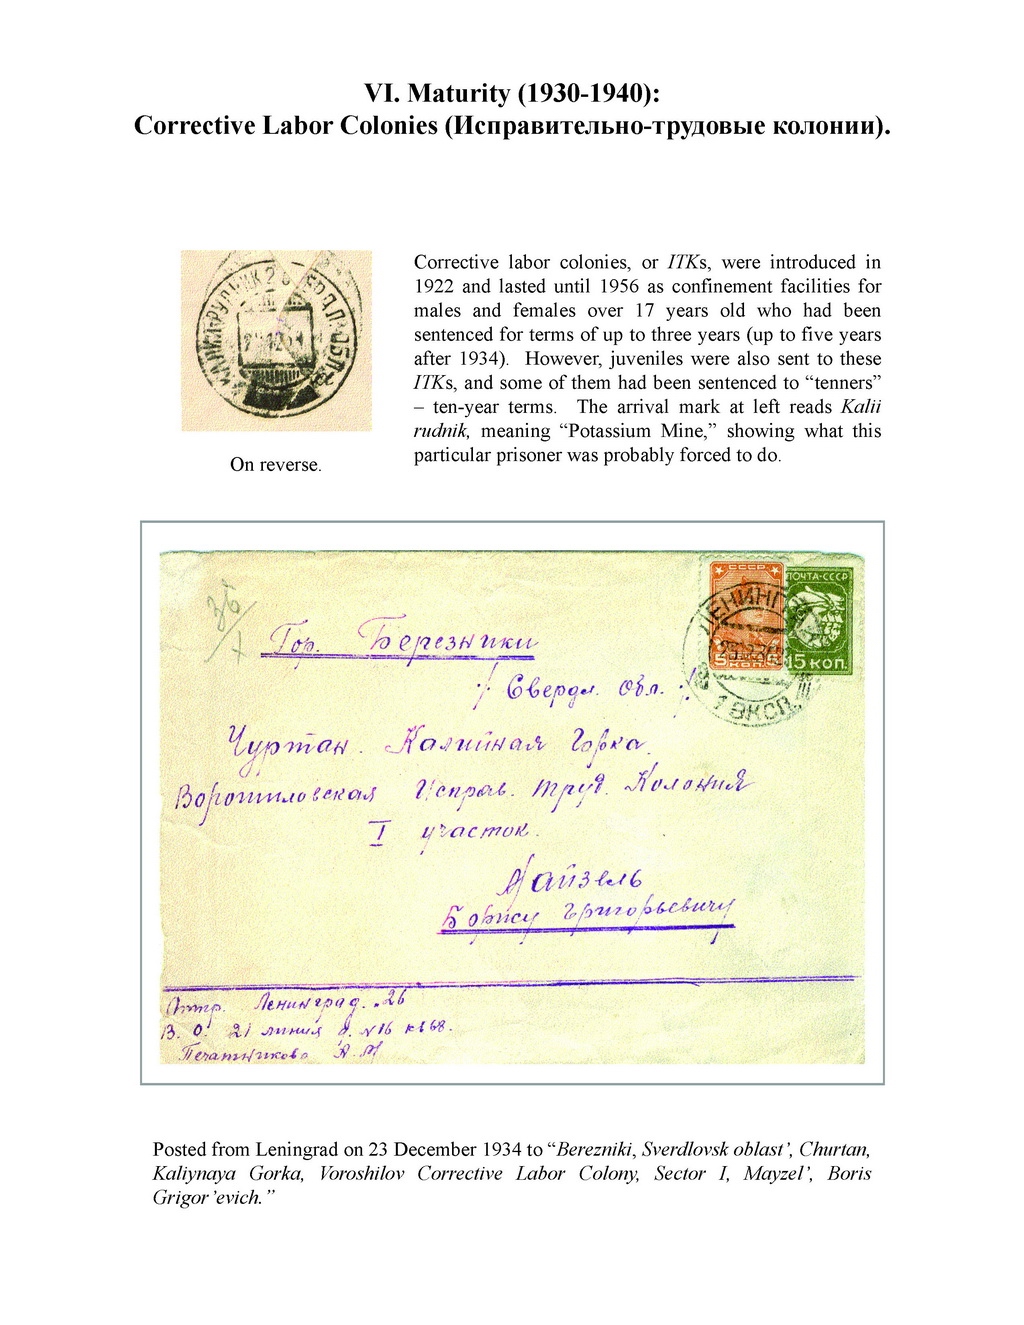 VI. Maturity (1930-1940):
Corrective Labor Colonies (Исправительно-трудовые колонии).
Corrective labor colonies, or ITKs, were introduced in
1922 and lasted until 1956 as confinement facilities for
males and females over 17 years old who had been
sentenced for terms of up to three years (up to five years
after 1934). However, juveniles were also sent to these
ITKs, and some of them had been sentenced to “tenners”
– ten-year terms. The arrival mark at left reads Kalii
rudnik, meaning “Potassium Mine,” showing what this
particular prisoner was probably forced to do.
КАЛИИ-РУДНИК ОБЛ
On reverse.
СССР
5 КОП. 5
ПОЧТА-СССР
15 КОП.
ЛЕНИНГ
1 ЭКСП.
Гор. Березники
Свердл. Обл.
Чуртан. Калийная Горка.
Ворошиловская Исправ. Труд. Колония
I участок.
Майзель
Борису Григорьевичу
Ленинград. 26
В. О. 21 линия д. №16 к 168.
Печатникова А. М
Posted from Leningrad on 23 December 1934 to “Berezniki, Sverdlovsk oblast’, Churtan,
Kaliynaya Gorka, Voroshilov Corrective Labor Colony, Sector I, Mayzel’, Boris
Grigor’evich.”